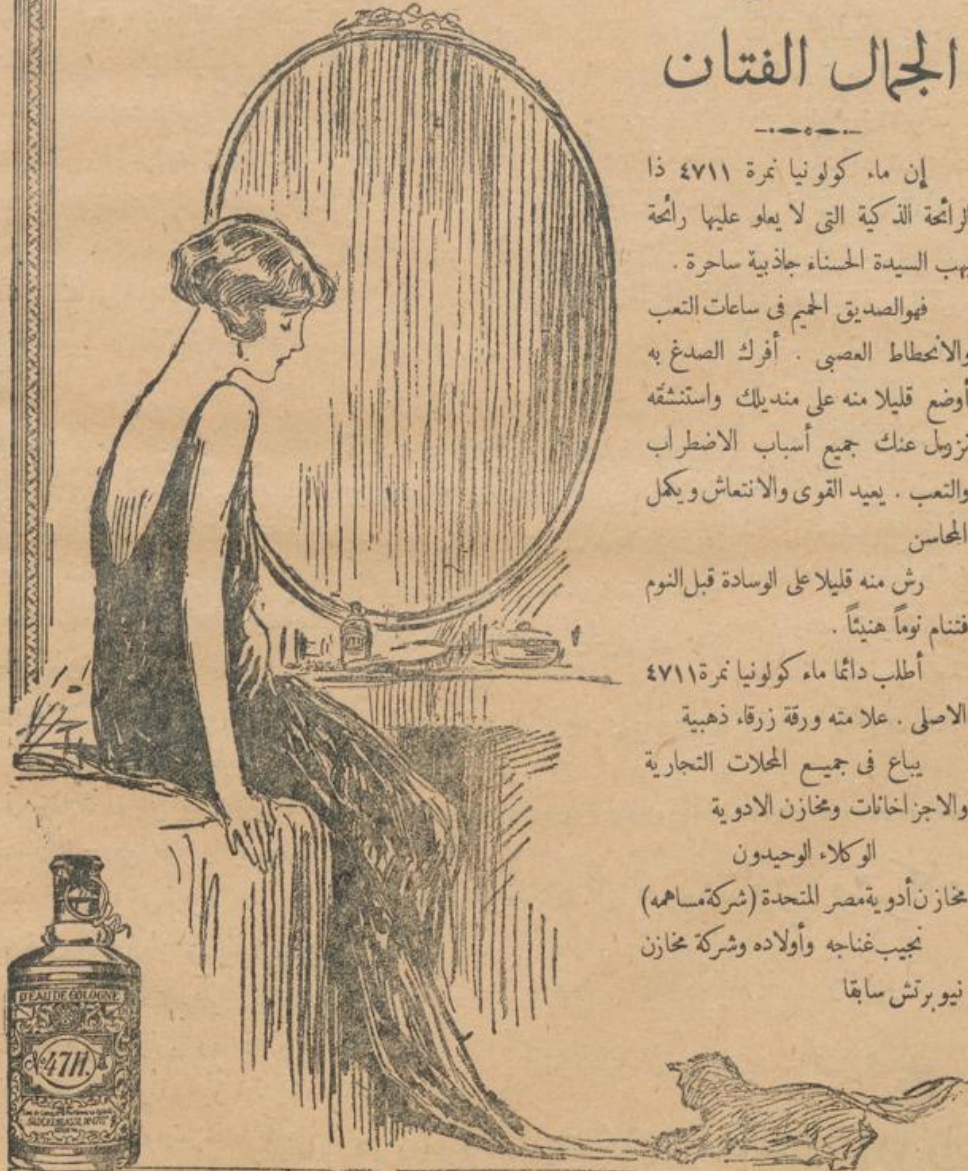 الجمال الفتان
إن ماء كولونيا نمرة ٤٧١١ ذا
الرائحة الذكية التى لا يعلو عليها رائحة
يهب السيدة الحسناء جاذبية ساحرة .
فهوالصديق الحميم فى ساعات التعب
والانحطاط العصبى . أفرك الصدغ به
أوضع قليلا منه على منديلك واستنشقه
تزول عنك جميع أسباب الاضطراب
والتعب . يعيد القوى والانتعاش ويكمل
المحاسن
رش منه قليلا على الوسادة قبل النوم
فتنام نوماً هنيئاً .
أطلب دائما ماء كولونيا نمرة ٤٧١١
الاصلى . علامته ورقة زرقاء ذهبية
يباع فى جميع المحلات التجارية
والاجزاخانات ومخازن الادوية
الوكلاء الوحيدون
مخازن أدوية مصر المتحدة (شركة مساهمه)
نجيب غناجه وأولاده وشركة مخازن
نيو برتش سابقا
D'EAU DE COLOGNE
No 4711.